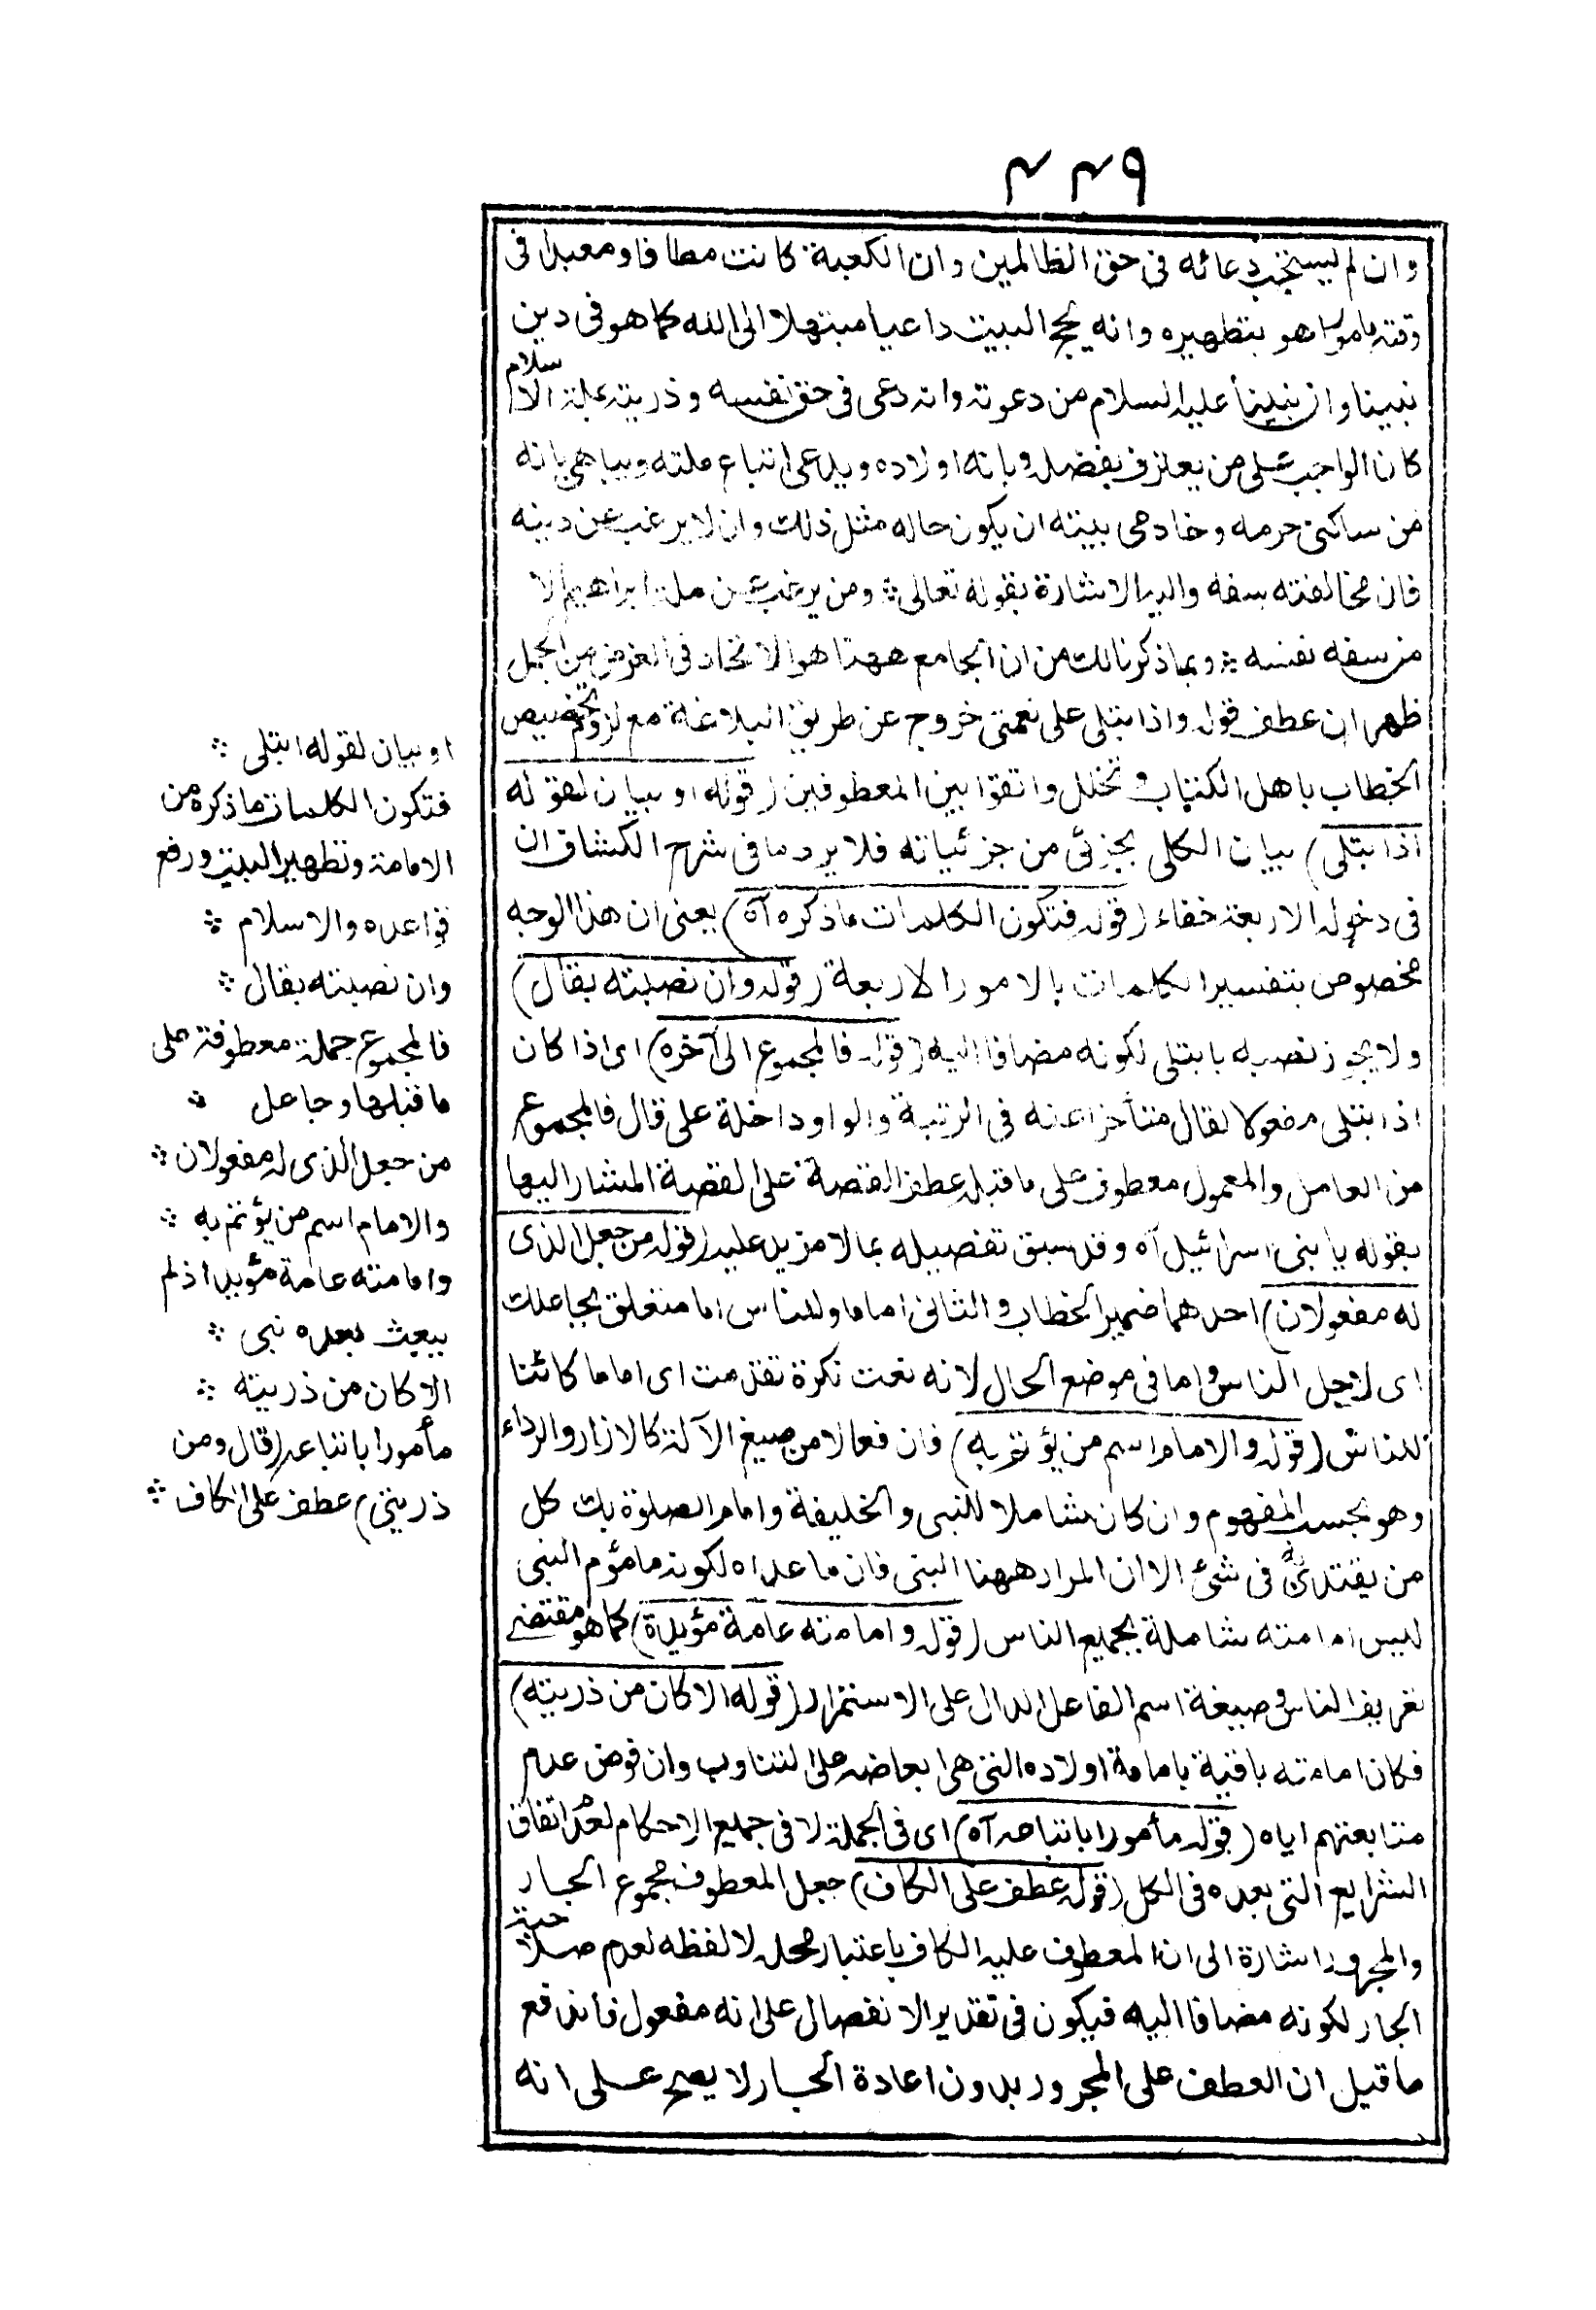 ٤٤٩
وان لم يستجب دعائه فى حق الظالمين وان الكعبة كانت مطافا ومعبدا فى
وقته مامورا هو بتطهيره وانه يحج البيت داعيا مبتهلا الى الله كما هو فى دين
نبينا وان نبينا عليه السلام من دعوته وانه دعى فى حق نفسه وذريته بملة الاسلام
كان الواجب على من يعترف بفضله وبانه اولاده ويدعى اتباع ملته ويباهى بانه
من ساكنى حرمه وخادمى بيته ان يكون حاله مثل ذلك وان لا يرغب عن دينه
فان مخالفته سفه واليه الاشارة بقوله تعالى ؞ ومن يرغب عن ملة ابراهيم الا
من سفه نفسه ؞ وبما ذكرنا لك من ان الجامع ههنا هو الاتحاد فى الغرض من الجمل
ظهر ان عطف قوله واذ ابتلى على نعمتى خروج عن طريق البلاغة مع لزوم تخصيص
الخطاب باهل الكتاب وتخلل واتقوا بين المعطوفين (قوله او بيان لقوله
اذ ابتلى) بيان الكلى بجزئى من جزئياته فلا يرد ما فى شرح الكشاف ان
فى دخول الاربعة خفاء (قوله فتكون الكلمات ما ذكره آه) يعنى ان هذا الوجه
مخصوص بتفسير الكلمات بالامور الاربعة (قوله وان نصبته بقال)
ولا يجوز نصبه بابتلى لكونه مضافا اليه (قوله فالمجموع الى آخره) اى اذا كان
اذ ابتلى مفعولا لقال متأخرا عنه فى الرتبة والواو داخلة على قال فالمجموع
من العامل والمعمول معطوف على ما قبله عطف القصة على القصة المشار اليها
بقوله يا بنى اسرائيل آه وقد سبق تفصيله بما لا مزيد عليه (قوله من جعل الذى
له مفعولان) احدهما ضمير الخطاب والثانى اماما وللناس اما متعلق بجاعلك
اى لاجل الناس واما فى موضع الحال لانه نعت نكرة تقدمت اى اماما كائنا
للناس (قوله والامام اسم من يؤتم به) فان فعالا من صيغ الآلة كالازار والرداء
وهو بحسب المفهوم وان كان شاملا للنبى والخليفة وامام الصلوة بل كل
من يقتدى به فى شئ الا ان المراد ههنا النبى فان ما عداه لكونه مامؤم النبى
ليس امامته شاملة لجميع الناس (قوله وامامته عامة مؤبدة) كما هو مقتضى
تعريف الناس وصيغة اسم الفاعل الدال على الاستمرار (قوله الا كان من ذريته)
فكان امامته باقية بامامة اولاده التى هى ابعاضه على التناوب وان فرض عدم
متابعتهم اياه (قوله مأمورا باتباعه آه) اى فى الجملة لا فى جميع الاحكام لعدم اتفاق
الشرايع التى بعده فى الكل (قوله عطف على الكاف) جعل المعطوف مجموع الجار
والمجرور اشارة الى ان المعطوف عليه الكاف باعتبار محله لا لفظه لعدم صلاحية
الجار لكونه مضافا اليه فيكون فى تقدير الانفصال على انه مفعول فاندفع
ما قيل ان العطف على المجرور بدون اعادة الجار لا يصح على انه
او بيان لقوله ابتلى ؞
فتكون الكلمات ما ذكره من
الامامة وتطهير البيت ورفع
قواعده والاسلام ؞
وان نصبته بقال ؞
فالمجموع جملة معطوفة على
ما قبلها وجاعل ؞
من جعل الذى له مفعولان ؞
والامام اسم من يؤتم به ؞
وامامته عامة مؤبدا اذ لم
يبعث بعده نبى ؞
الا كان من ذريته ؞
مأمورا باتباعه (قال ومن
ذريتى) عطف على الكاف ؞